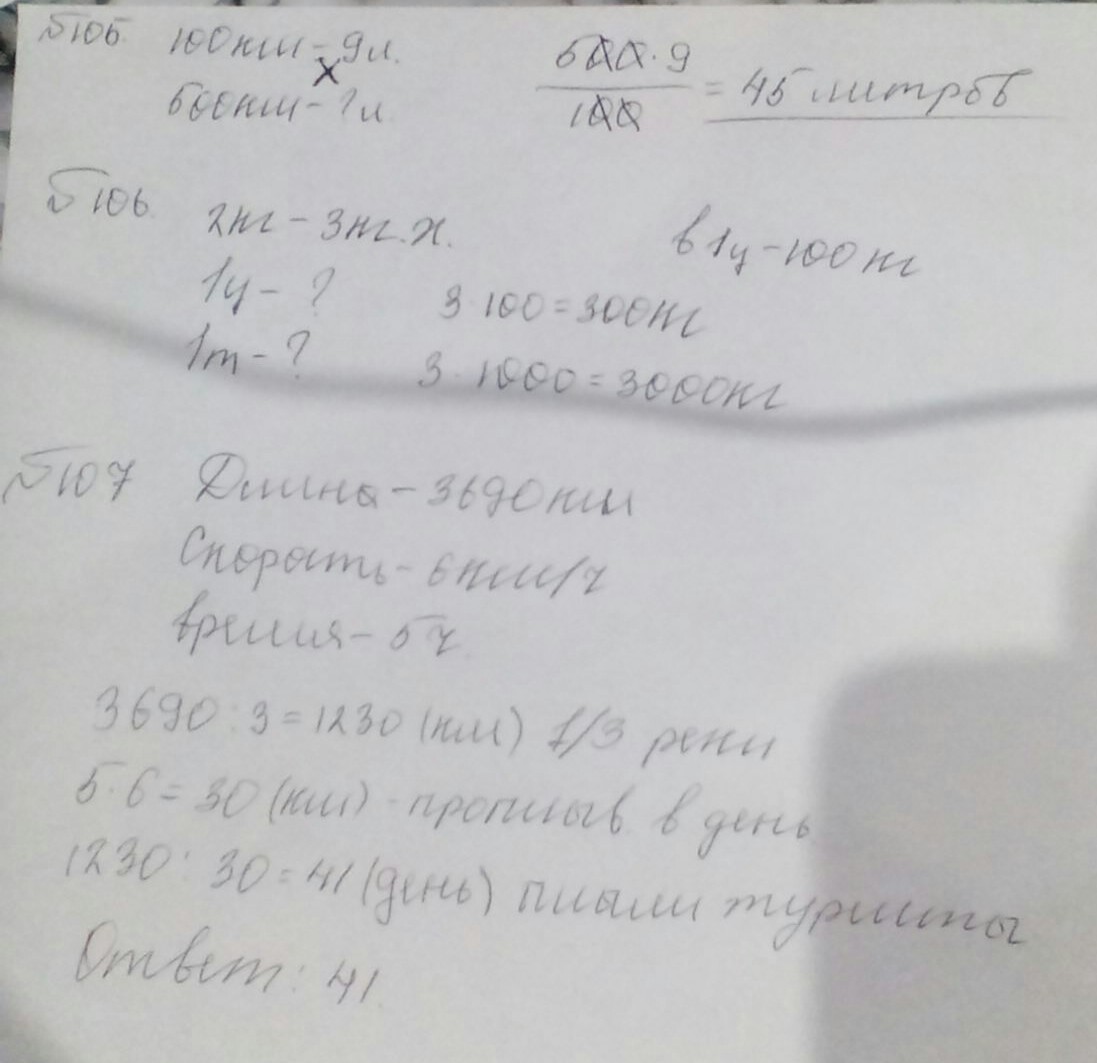 №105 100км - 9л.
500км - ?л
500·9
100
= 45 литров
№106 2кг - 3кг.х. в 1ц - 100 кг
1ц - ? 3·100=300кг
1т - ? 3·1000=3000кг
№107 Длина - 3690км
Скорость - 6км/ч
время - 5ч
3690:3=1230 (км) 1/3 реки
5·6=30 (км) - проплыв в день
1230:30=41 (день) плыли туристы
Ответ: 41